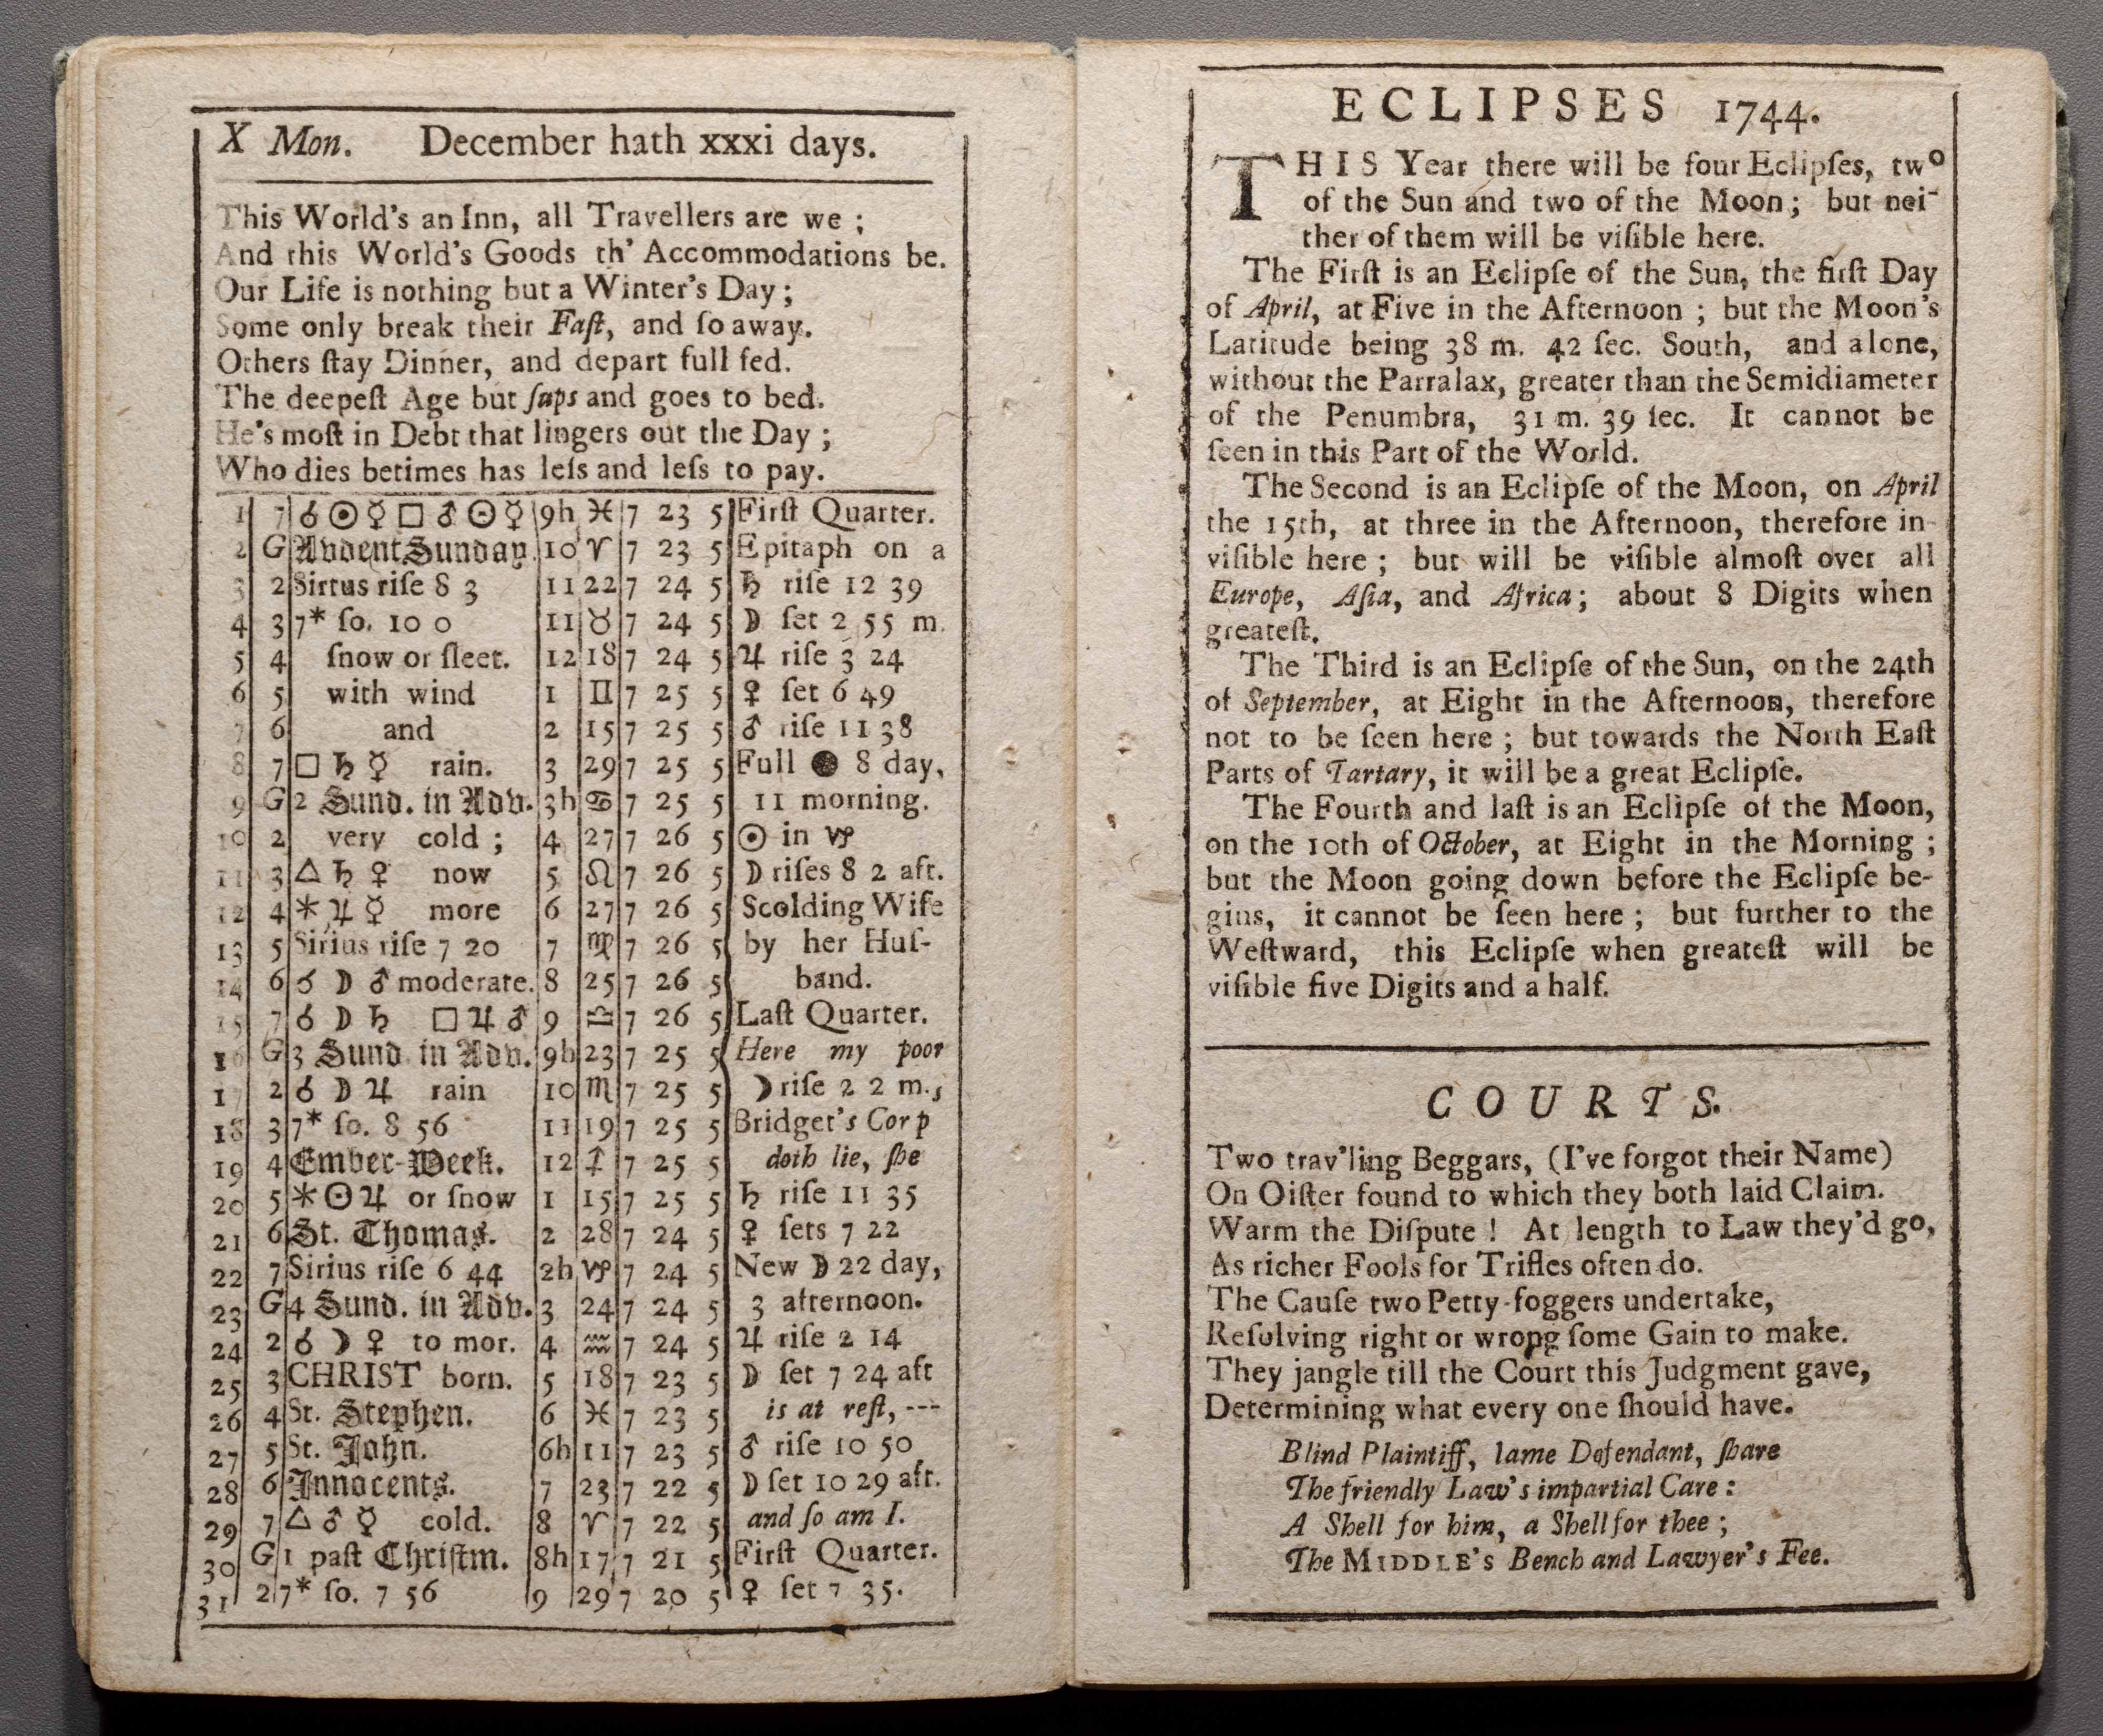 X Mon. December hath xxxi days.
This World's an Inn, all Travellers are we ;
And this World's Goods th' Accommodations be.
Our Life is nothing but a Winter's Day ;
Some only break their Faſt, and ſo away.
Others ſtay Dinner, and depart full fed.
The deepeſt Age but ſups and goes to bed.
He's moſt in Debt that lingers out the Day ;
Who dies betimes has leſs and leſs to pay.
1 7 ☌ ☉ ☿ □ ♂ ☉ ☿ 9h ♓ 7 23 5 Firſt Quarter.
2 G Advent Sunday. 10 ♈ 7 23 5 Epitaph on a
3 2 Sirius riſe 8 3 11 22 7 24 5 ♄ riſe 12 39
4 3 7* ſo. 10 0 11 ♉ 7 24 5 ☽ ſet 2 55 m.
5 4 ſnow or ſleet. 12 18 7 24 5 ♃ riſe 3 24
6 5 with wind 1 ♊ 7 25 5 ♀ ſet 6 49
7 6 and 2 15 7 25 5 ♂ riſe 11 38
8 7 □ ♄ ☿ rain. 3 29 7 25 5 Full ● 8 day,
9 G 2 Sund. in Adv. 3h ♋ 7 25 5 11 morning.
10 2 very cold ; 4 27 7 26 5 ☉ in ♑
11 3 △ ♄ ♀ now 5 ♌ 7 26 5 ☽ riſes 8 2 aft.
12 4 * ♃ ☿ more 6 27 7 26 5 Scolding Wife
13 5 Sirius riſe 7 20 7 ♍ 7 26 5 by her Huſ-
14 6 ☌ ☽ ♂ moderate. 8 25 7 26 5 band.
15 7 ☌ ☽ ♄ □ ♃ ♂ 9 ♎ 7 26 5 Laſt Quarter.
16 G 3 Sund. in Adv. 9h 23 7 25 5 Here my poor
17 2 ☌ ☽ ♃ rain 10 ♏ 7 25 5 ☽ riſe 2 2 m.,
18 3 7* ſo. 8 56 11 19 7 25 5 Bridget's Corp
19 4 Ember-Week. 12 ♐ 7 25 5 doth lie, ſhe
20 5 * ☉ ♃ or ſnow 1 15 7 25 5 ♄ riſe 11 35
21 6 St. Thomas. 2 28 7 24 5 ♀ ſets 7 22
22 7 Sirius riſe 6 44 2h ♑ 7 24 5 New ☽ 22 day,
23 G 4 Sund. in Adv. 3 24 7 24 5 3 afternoon.
24 2 ☌ ☽ ♀ to mor. 4 ♒ 7 24 5 ♃ riſe 2 14
25 3 CHRIST born. 5 18 7 23 5 ☽ ſet 7 24 aft
26 4 St. Stephen. 6 ♓ 7 23 5 is at reſt, ---
27 5 St. John. 6h 11 7 23 5 ♂ riſe 10 50
28 6 Innocents. 7 23 7 22 5 ☽ ſet 10 29 aft.
29 7 △ ♂ ☿ cold. 8 ♈ 7 22 5 and ſo am I.
30 G 1 paſt Chriſtm. 8h 17 7 21 5 Firſt Quarter.
31 2 7* ſo. 7 56 9 29 7 20 5 ♀ ſet 7 35.
ECLIPSES 1744.
THIS Year there will be four Eclipſes, two
of the Sun and two of the Moon ; but nei-
ther of them will be viſible here.
The Firſt is an Eclipſe of the Sun, the firſt Day
of April, at Five in the Afternoon ; but the Moon's
Latitude being 38 m. 42 ſec. South, and alone,
without the Parralax, greater than the Semidiameter
of the Penumbra, 31 m. 39 ſec. It cannot be
ſeen in this Part of the World.
The Second is an Eclipſe of the Moon, on April
the 15th, at three in the Afternoon, therefore in-
viſible here ; but will be viſible almoſt over all
Europe, Aſia, and Africa ; about 8 Digits when
greateſt.
The Third is an Eclipſe of the Sun, on the 24th
of September, at Eight in the Afternoon, therefore
not to be ſeen here ; but towards the North Eaſt
Parts of Tartary, it will be a great Eclipſe.
The Fourth and laſt is an Eclipſe of the Moon,
on the 10th of October, at Eight in the Morning ;
but the Moon going down before the Eclipſe be-
gins, it cannot be ſeen here ; but further to the
Weſtward, this Eclipſe when greateſt will be
viſible five Digits and a half.
COURTS.
Two trav'ling Beggars, (I've forgot their Name)
On Oiſter found to which they both laid Claim.
Warm the Diſpute ! At length to Law they'd go,
As richer Fools for Trifles often do.
The Cauſe two Petty-foggers undertake,
Reſolving right or wrong ſome Gain to make.
They jangle till the Court this Judgment gave,
Determining what every one ſhould have.
Blind Plaintiff, lame Defendant, ſhare
The friendly Law's impartial Care :
A Shell for him, a Shell for thee ;
The MIDDLE's Bench and Lawyer's Fee.